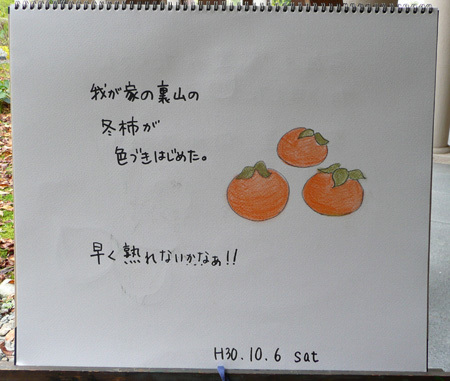 我が家の裏山の
冬柿が
色づきはじめた。
早く熟れないかなぁ!!
H30.10.6 sat